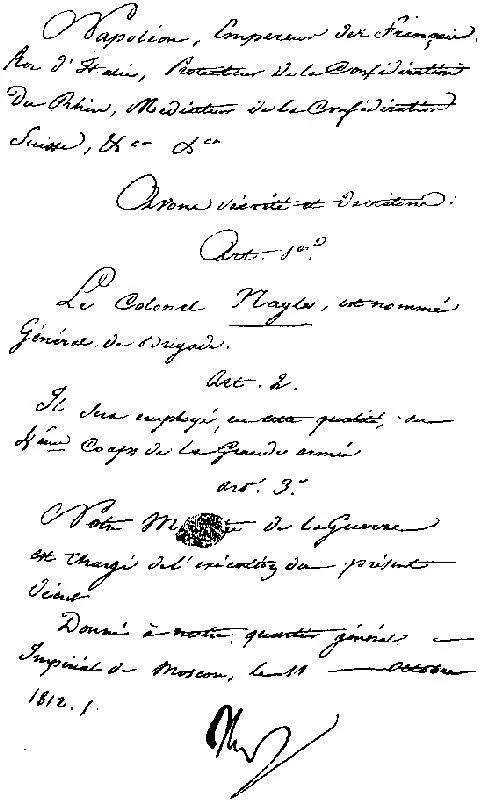 Napoléon, Empereur des Français,
Roi d'Italie, Protecteur de la Confédération
Du Rhin, Médiateur de la Confédération
Suisse, &ca &ca
Avons décrété et décrétons:
Art. 1er
Le Colonel Nagle, est nommé
Général de Brigade.
Art. 2.
Il sera employé, en cette qualité, au
Corps de la Grande armée
art. 3.
Notre de la Guerre
est chargé de l'exécution du présent
Décret
Donné à notre quartier général
Impérial de Moscou, le 11 Octobre
1812.